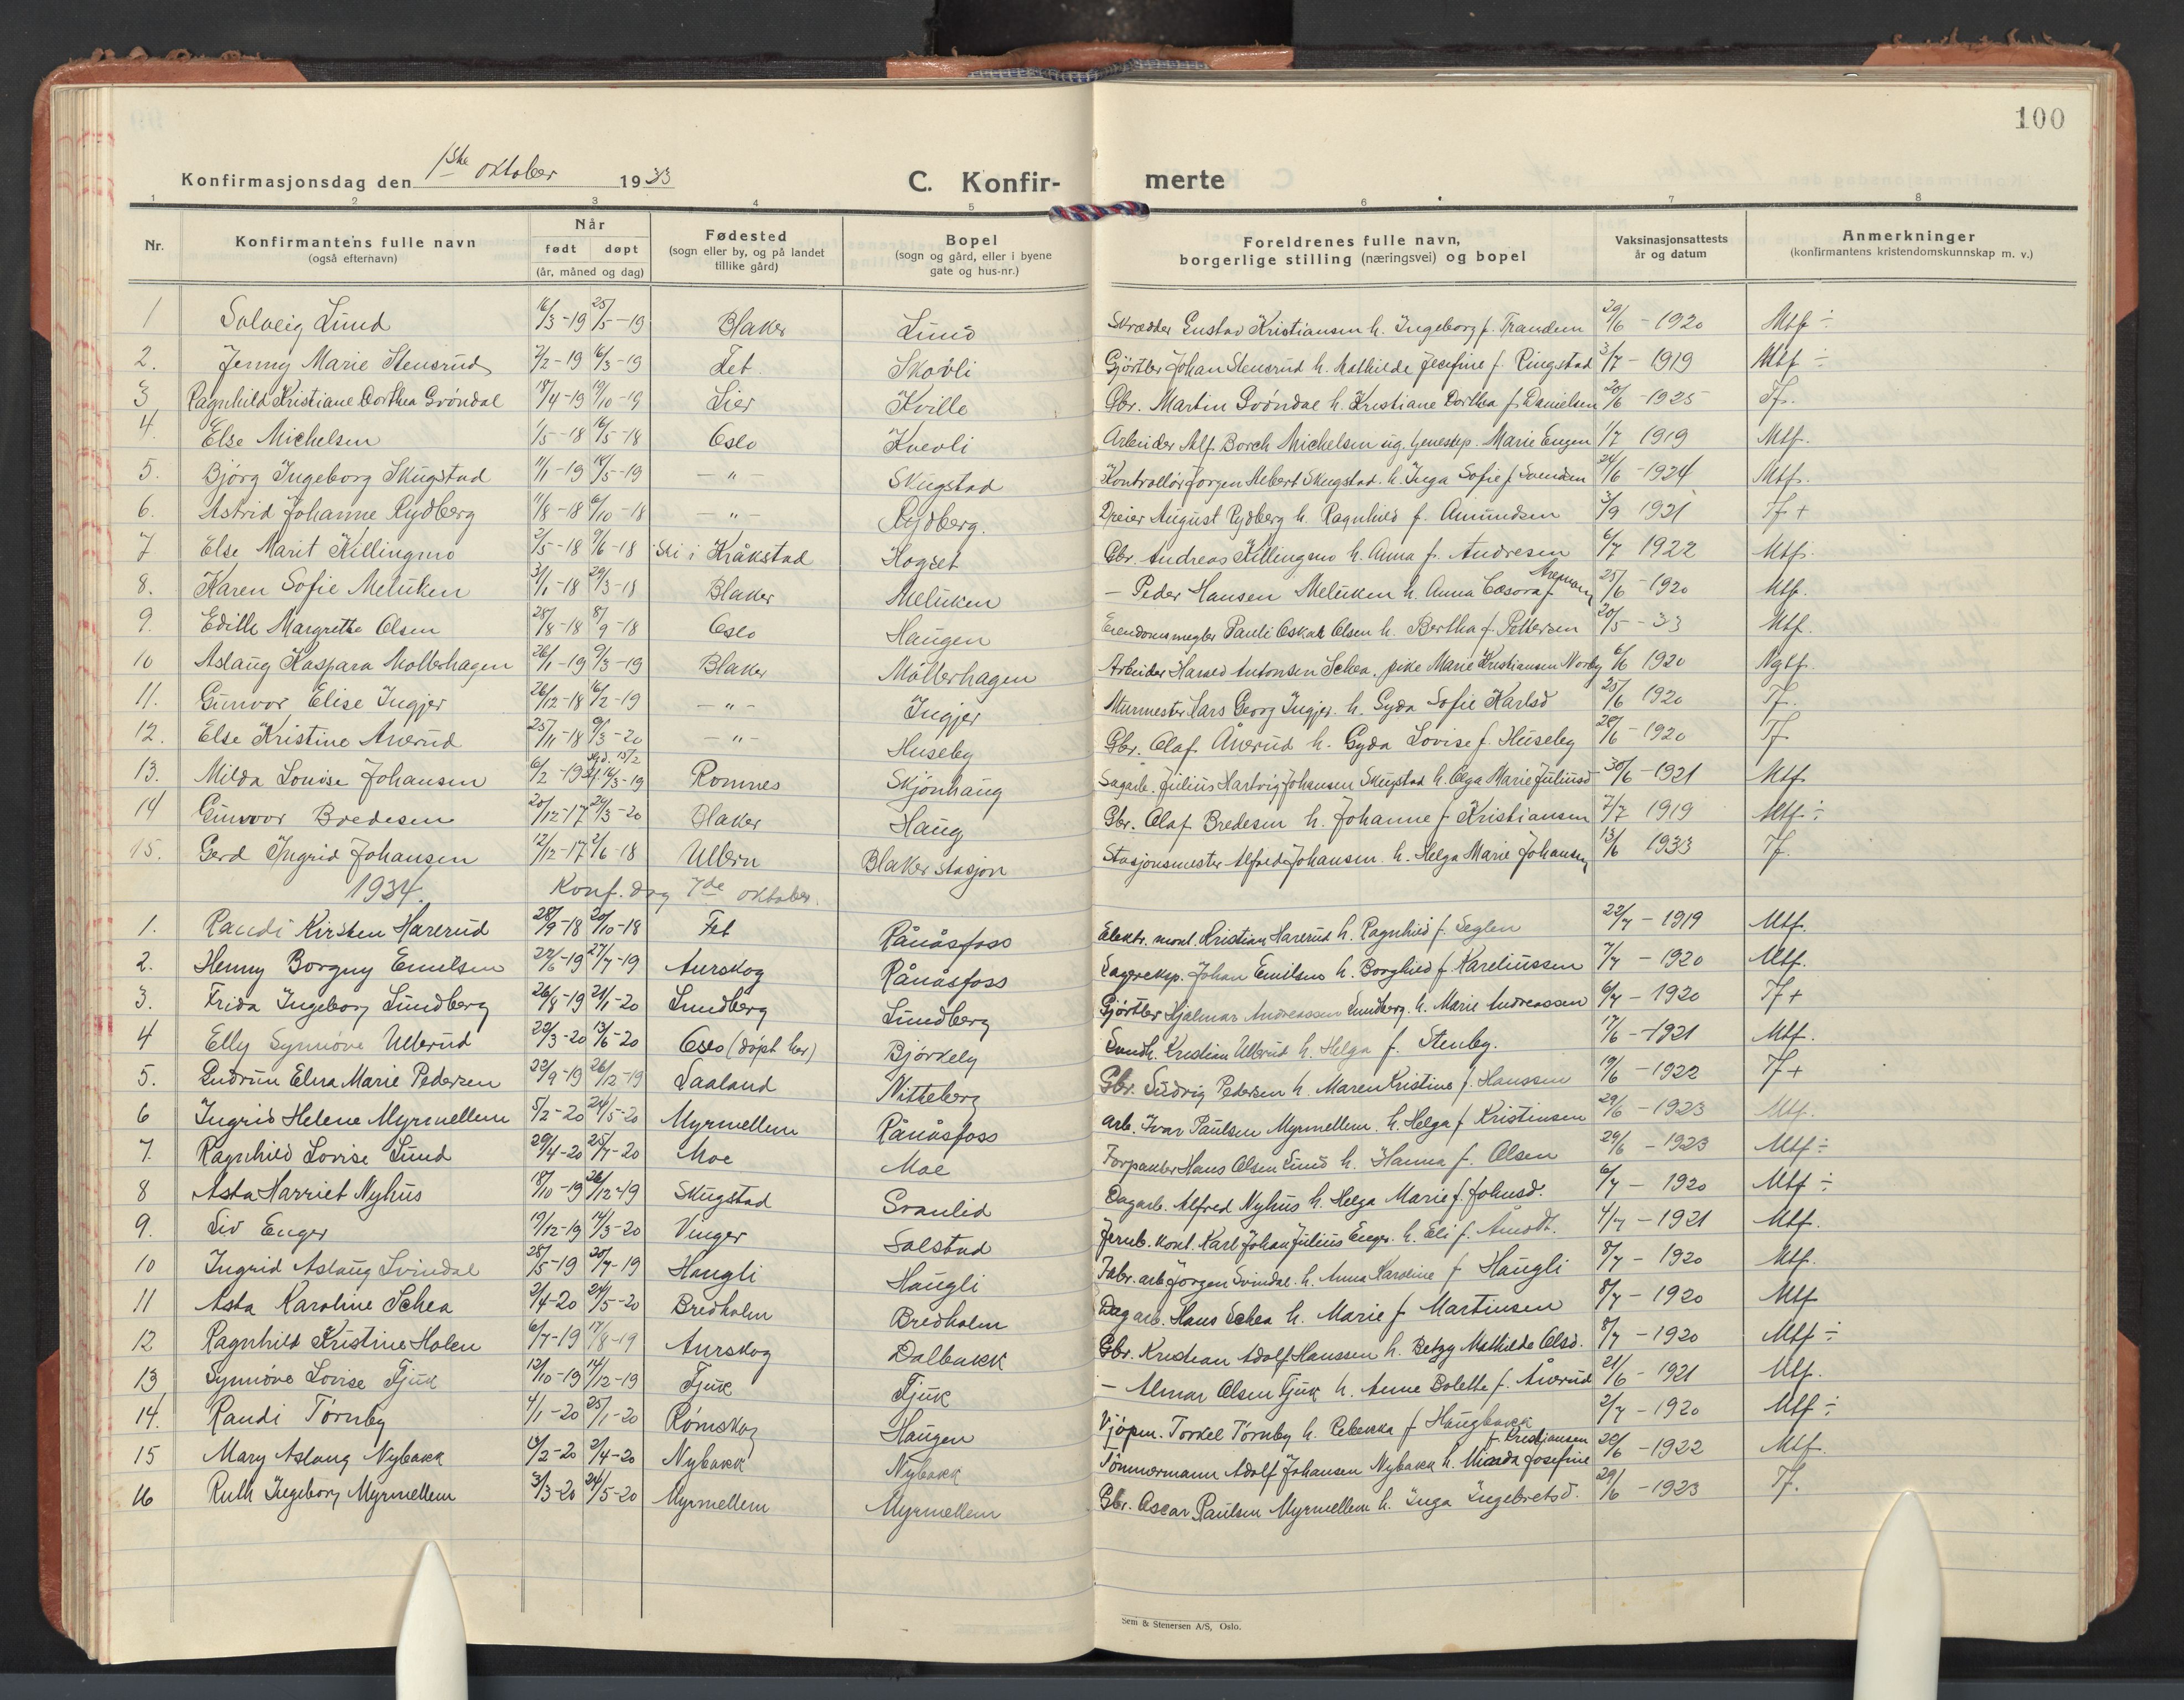 100
Konfirmasjonsdag den 1ste oktober 1933 C. Konfir- merte
1 2 3 4 5 6 7 8
Nr. Konfirmantens fulle navn (også efternavn) Når født døpt (år, måned og dag) Fødested (sogn eller by, og på landet tillike gård) Bopel (sogn og gård, eller i byene gate og hus-nr.) Foreldrenes fulle navn, borgerlige stilling (næringsvei) og bopel Vaksinasjonsattests år og datum Anmerkninger (konfirmantens kristendomskunnskap m. v.)
1 Solveig Lund 16/3-19 25/5-19 Blaker Lund Skrædder Gustav Kristiansen h. Ingeborg f. Trandem 29/6 - 1920 Mtf ÷
2. Jenny Marie Stensrud 7/2-19 16/3-19 Fet Skovli Gjörtler Johan Stensrud h. Mathilde Josefine f. Ringstad 3/7 - 1919 Mtf ÷
3 Ragnhild Kristiane Dorthea Gröndal 18/4-19 19/10-19 Lier Kville Gbr. Martin Gröndal h. Kristiane Dorthea f. Danielsen 20/6 - 1925 Tf.
4. Else Michelsen 1/5-18 16/5-18 Oslo Kvevli Arbeider Alf Borch Michelsen ug. Marie Eugen 1/7 1919 Mtf.
5. Bjørg Ingeborg Skugstad 11/1-19 18/5-19 - " - Skugstad Kontrollör Jørgen Albert Skugstad h. Inga Sofie f. Svendsen 24/6 - 1924 Mtf.
6. Astrid Johanne Rydberg 11/8-18 6/10-18 - " - Rydberg. Dreier August Rydberg h. Ragnhild f. Amundsen 3/9 1921 Tf +
7 Else Marit Killingmo 2/5-18 9/6-18 Ski i Kråkstad Hogset Gbr. Andreas Killingmo h. Anna f. Andresen 6/7 1922 Mtf.
8. Karen Sofie Melüken 31/1-18 29/3-18 Blaker Melüken - Peder Hansen Melüken h. Anna f. 25/6 - 1920 Mtf.
9. Edith Margrethe Olsen 28/8-18 8/9-18 Oslo Haugen Eiendomsmegler Pauli Oskar Olsen h. Bertha f. Pettersen 20/5 - 33 Mtf.
10 Aslaug Kaspara Mollerhagen 26/1-19 9/3-19 Blaker Möllerhagen Arbeider Harald Antonsen Schea, pike Marie Kristiansen Norby 6/6 1920 Ngtf.
11. Gunvor Elise Ingjer 26/12-18 16/2-19 - " - Ingjer Murmester Lars Georg Ingjer. h. Gyda Sofie Karlsd 25/6 1920 Tf.
12. Else Kristine Åverud 25/11-18 9/3-20 - " - Huseby Gbr. Olaf Åverud h. Gyda Lovise f. Huseby 28/6 - 1920 Tf
13. Milda Lovise Johansen 6/2-19 hjd. 15/2 st. 16/3-19 Romnes Skjönhaug Sagarb. Julius Hartvig Johansen Skugstad h. Olga Marie Juliusd 30/6 - 1921 Mtf
14 Gunvor Bredesen 20/12-17 24/3-20 Blaker Haug Gbr. Olaf Bredesen h. Johanne f. Kristiansen 7/7 1919 Mtf ÷
15. Gerd Ingrid Johansen 12/12-17 2/6-18 Ullern Blaker stasjon Stasjonsmester Alfred Johansen h. Helga Marie Johansen 13/6 1933 Tf.
1934. Konf. dag 7de oktober.
1. Randi Kirsten Harerud 28/9-18 20/10-18 Fet Rånåsfoss Elektr. mont. Kristian Harerud h. Ragnhild f. Seglen 22/7 - 1919 Mtf.
2. Henny Borgny Emilsen 22/6-19 27/7-19 Aurskog Rånåsfoss Lagereksp. Johan Emilsen h. Borghild f. Kareliussen 7/7 - 1920 Mtf.
3. Frida Ingeborg Lundberg 26/8-19 21/1-20 Lundberg Lundberg Gjörtler Hjalmar Andreassen Lundberg. h. Marie Andreassen 6/7 - 1920 Tf +
4 Elly Synnöve Ullerud 29/3-20 13/6-20 Oslo (döpt her) Björkely Landh. Kristian Ullerud h. Helga f. Stenby. 17/6 - 1921 Mtf.
5. Gudrun Elna Marie Pedersen 22/9-19 26/12-19 Laaland Nitteberg Gbr. Ludvig Pedersen h. Maren Kristine f. Hanssen 19/6 - 1922 Tf +
6 Ingrid Helene Myrmellem 5/2-20 24/5-20 Myrmellem Rånåsfoss Arb. Ivar Paulsen Myrmellem. h. Helga f. Kristinsen 29/6 - 1923 Mtf.
7. Ragnhild Lovise Lund 29/4-20 25/7-20 Moe Moe Forpakter Hans Olsen Lund h. Hanna f. Olsen 29/6 - 1923 Mtf ÷
8 Asta Harriet Nyhus 18/10-19 26/12-19 Skugstad Svanlid Dagarb. Alfred Nyhus h. Helga Marie f. Johnsd. 6/7 - 1920 Mtf ÷
9. Liv Enger 19/12-19 14/3-20 Vinger Solstad Jernb. kont. Karl Johan Julius Enger. h. Eli f. Åmodt. 4/7 - 1921 Mtf.
10 Ingrid Aslaug Svindal 28/5-19 20/7-19 Haugli Haugli Fabr. arb Jörgen Svindal. h. Anna Karoline f. Haugli 8/7 - 1920 Mtf.
11 Asta Karoline Schea 2/4-20 24/5-20 Bredholm Bredholm Dagarb. Hans Schea h. Marie f. Martinsen 8/7 - 1920 Mtf
12 Ragnhild Kristine Holen 6/7-19 17/8-19 Aurskog Dalbakk Gbr. Kristian Adolf Hanssen h. Betzy Mathilde Olsd. 8/7 - 1920 Mtf ÷
13 Synnöve Lovise Tjuk 12/10-19 14/12-19 Tjuk Tjuk - Almar Olsen Tjuk h. Anne Bolette f. Åverud 21/6 - 1921 Mtf.
14. Randi Törnby 4/1-20 25/1-20 Römskog Haugen Torkel Törnby h. Rebekka f. Haugbakk 2/7 - 1920 Mtf ÷
15 Mary Aslaug Nybakk 15/2-20 2/4-20 Nybakk Nybakk Tömmermann Adolf Johansen Nybakk h. Josefine f. Kristjansen 28/6 - 1922 Mtf.
16 Ruth Ingeborg Myrmellem 3/3-20 24/5-20 Myrmellem Myrmellem Gbr. Oscar Paulsen Myrmellem h. Inga Ingebretsd. 29/6 - 1923 Tf.
Sem & Stenersen A/S, Oslo.